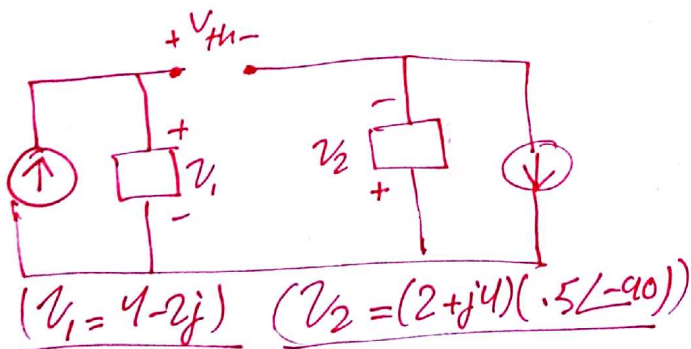 + Vth -
+
-
V₂
V₁
-
+
(V₁ = 4-2j) (V₂ = (2+j4)(.5∠-90))